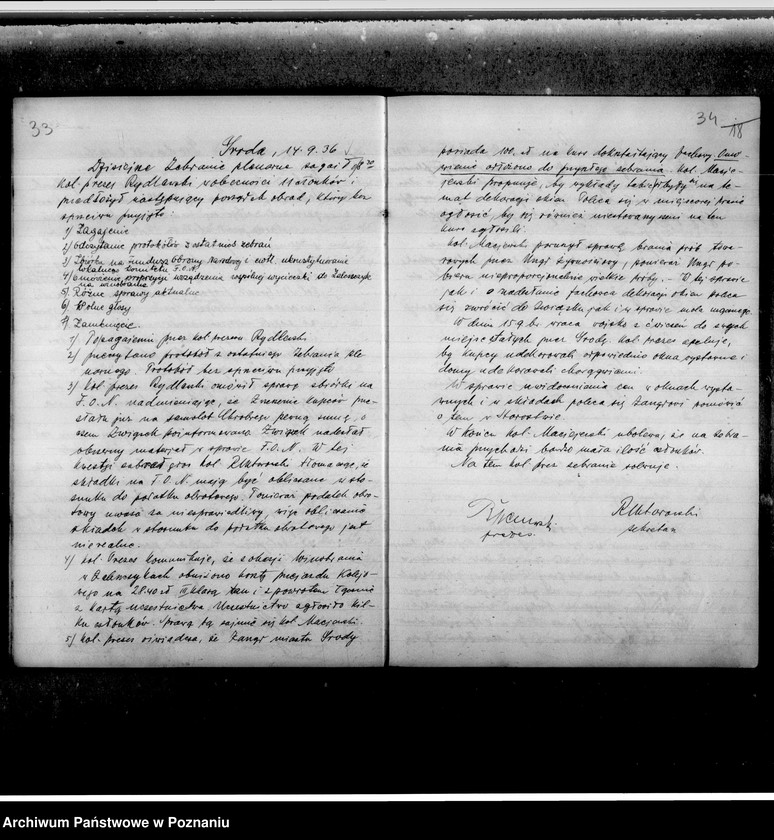 33
Środa, 14.9.36
Dzisiejsze Zebranie plenarne zagaił
kol. prezes Rydlewski w obecności członków i
przedłożył następujący porządek obrad, który bez
sprzeciwu przyjęto:
1) Zagajenie
2) odczytanie protokółów z ostatnich zebrań
3) Zbiórka na fundusz obrony narodowej i ewtl. ukonstytuowanie
lokalnego komitetu F.O.N.
4) omówienie propozycji urządzenia wspólnej wycieczki do Zaleszczyk
na winobranie
5) Różne sprawy aktualne
6) Wolne głosy
7) Zamknięcie.
1) Po zagajeniu przez kol. prezesa Rydlewski
2) przeczytano protokół z ostatniego Zebrania ple
narnego. Protokół bez sprzeciwu przyjęto
3) kol. prezes Rydlewski omówił sprawę zbiórki na
F.O.N. nadmieniając, że Zrzeszenie kupców prze
słało już na samolot pewną sumę, o
czem Związek poinformowano. Związek nadesłał
obszerny materjał w sprawie F.O.N. W tej
kwestji zabrał głos kol. Rektorowski że
składki na F.O.N. mają być obliczane w sto-
sunku do podatku obrotowego. Ponieważ podatek obro-
towy uważa za niesprawiedliwy, więc obliczanie
składek w stosunku do podatku obrotowego jest
nierealne.
4) kol. Prezes komunikuje, że z okazji Winobrania
w Zaleszczykach obniżono koszty przejazdu Kolejo-
wego na 28.40 zł III klasą tam i z powrotem łącznie
z kartą uczestnictwa. Uczestnictwo zgłosiło kil-
ku członków. Sprawą tą zajmie się kol. Maciejewski.
5) kol. prezes oświadcza, że Zarząd miasta Środy
34
18
posiada 100 zł na kurs dokształcający fachowy. Omó-
wienie odłożono do przyszłego zebrania. kol. Macie-
jewski proponuje, by wykłady także były na te-
mat dekoracji okien. Poleca się w miejscowej prasie
ogłosić, by się również niezrzeszeni na ten
kurs zgłosili.
kol. Maciejewski poruszył sprawę brania prób towa-
rowych przez Urząd żywnościowy, ponieważ Urząd po-
biera nieproporcjonalnie wielkie próby. — W tej sprawie
jak i o nadesłanie fachowca dekoracji okien poleca
się zwrócić do
W dniu 15.9. br. wraca wojsko z ćwiczeń do swych
miejsc stałych przez Środę. Kol. prezes apeluje,
by kupcy udekorowali odpowiednio okna wystawne i
domy udekorowali chorągwiami.
W sprawie uwidocznienia cen w oknach wysta-
wnych i w składach poleca się Zarządowi pomówić
o tem w Starostwie.
W końcu kol. Maciejewski ubolewa, że na zebra-
nia przychodzi bardzo mała ilość członków.
Na tem kol. prezes zebranie solwuje.
Rektorowski
prezes.
sekretarz
Archiwum Państwowe w Poznaniu